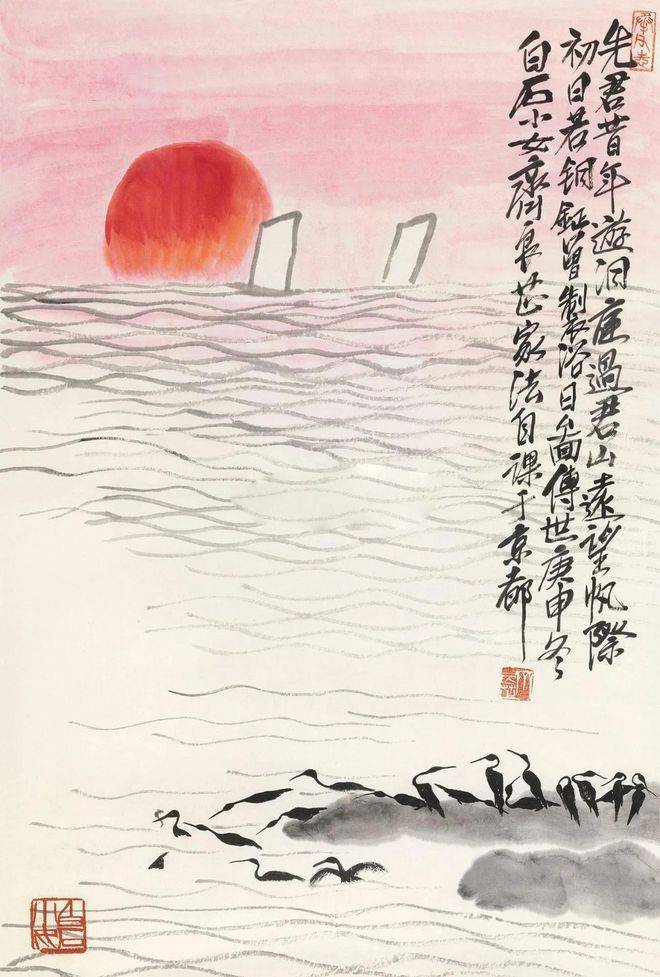 先君昔年遊洞庭過君山遠望帆際
初日若銅鉦曾製浴日圖傳世庚申冬
白石小女齊良芷家法自課于京都